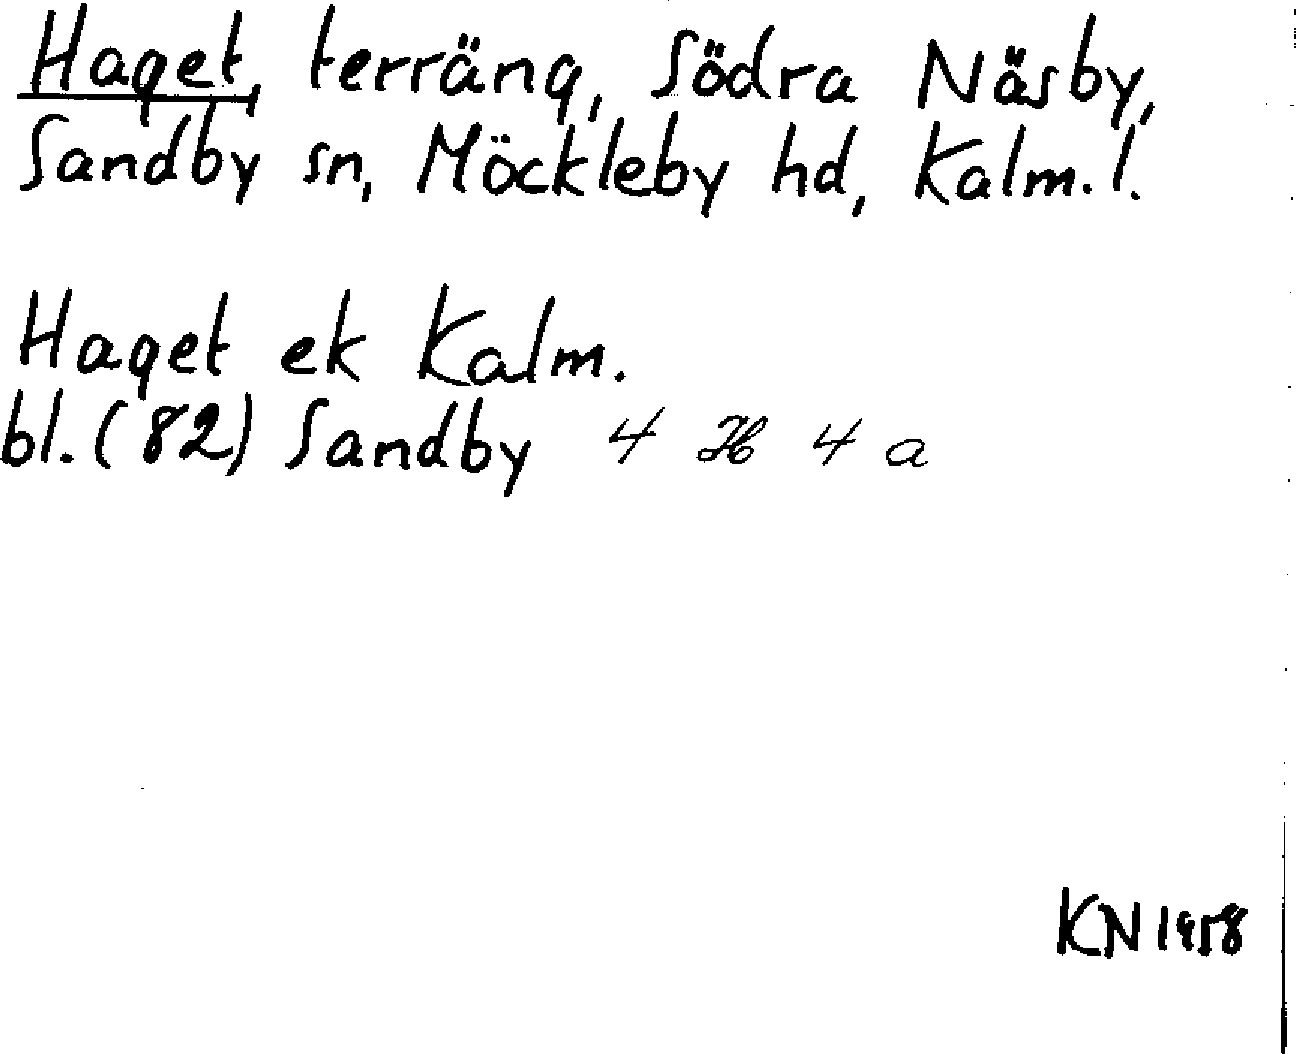 Haget, terräng, Södra Näsby,
Sandby sn, Möckleby hd, Kalm. l.
Haget ek Kalm.
bl. (82) Sandby 4 H 4 a
KN 1958